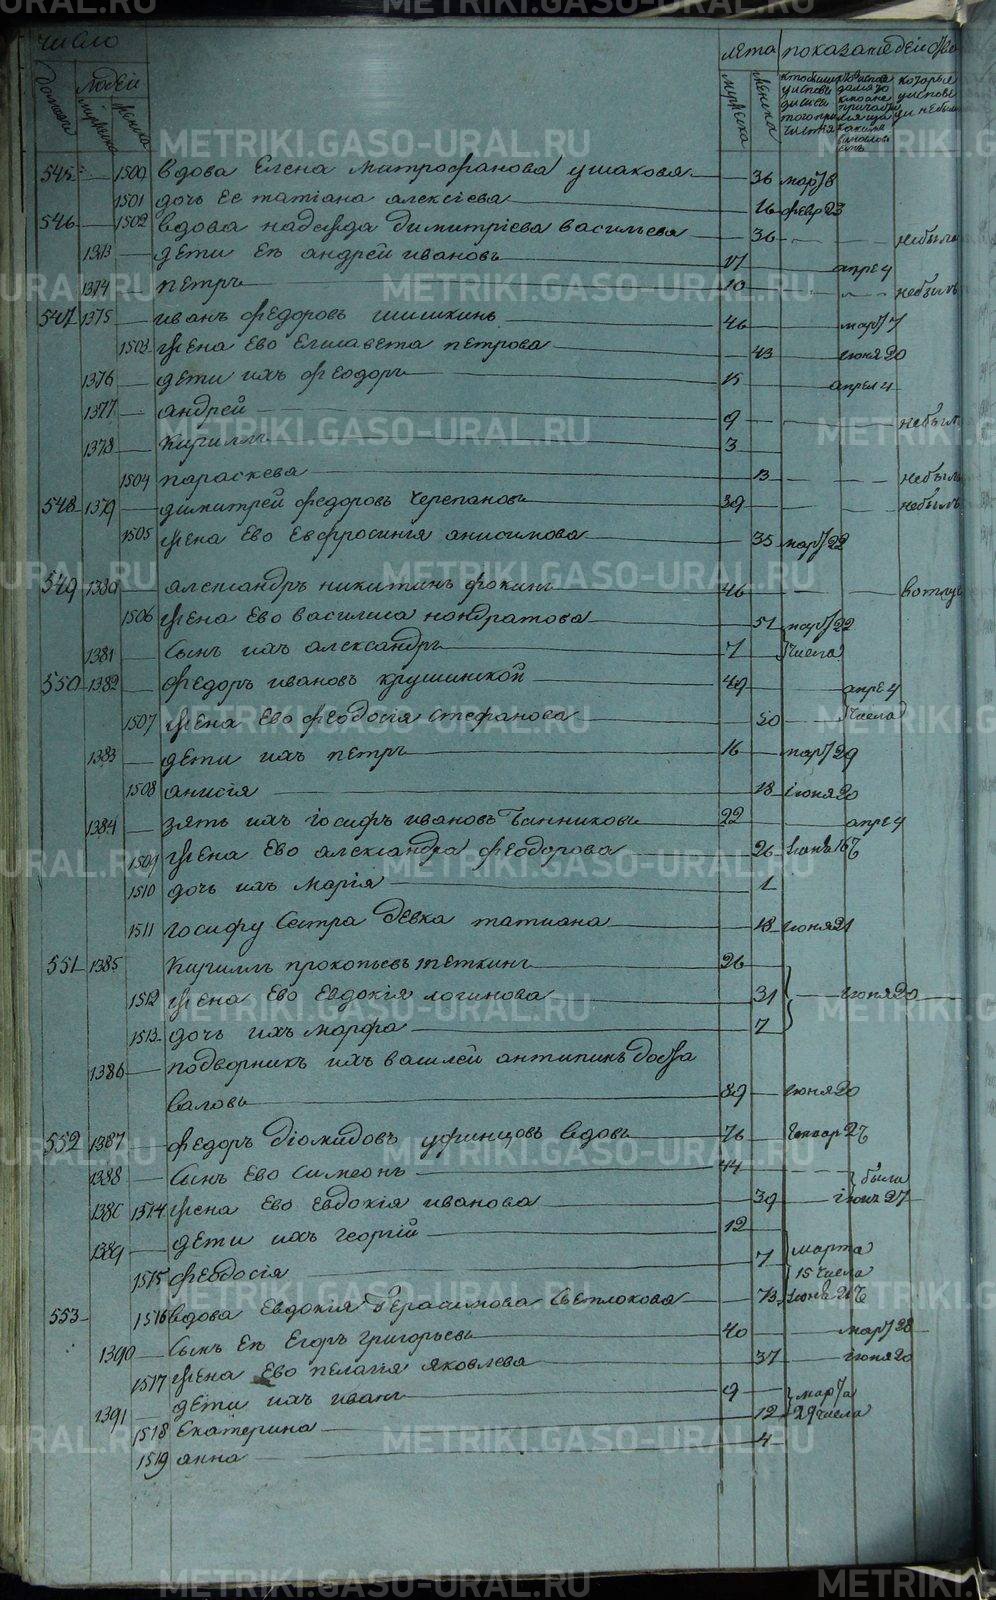 число лѣта показанїе дѣйства
домовъ людей мужеска женска мужеска женска
545 1500 вдова Елена митрофанова ушакова 36 мар 8
1501 дочь Ее татїана алексїева 16 февр 23
546 1502 вдова надежда димитрїева васильева 36 небыла
1373 дети Еѣ андрей ивановъ 17 апре 4
1374 петръ 10 небылъ
547 1375 иванъ феодоровъ шишкинъ 46 мар 7
1503 жена Ево Елисавета петрова 43 їюня 20
1376 дети ихъ феодоръ 15 апрел 4
1377 андрей 9 небылъ
1378 Кириллъ 3
1504 параскева 13 небыла
548 1379 димитрей федоровъ черепановъ 39 небылъ
1505 жена Ево Евфросинїя анисимова 35 мар 22
549 1380 александръ никитинъ фокинъ 46
1506 жена Ево василиса кондратова 51 мар 22
1381 Сынъ ихъ александръ 7 числа
550 1382 федоръ ивановъ крушинской 49 апре 4
1507 жена Ево феодосїя стефанова 50 числа
1383 дети ихъ петръ 16 мар 29
1508 анисїя 18 їюня 20
1384 зять ихъ їосифъ ивановъ банниковъ 22 апре 4
1509 жена Ево александра феодорова 26
1510 дочь ихъ марїя 1
1511 їосифу Сестра девка татиана 18 їюня 21
551 1385 Кириллъ прокопьевъ теткинъ 26
1512 жена Ево Евдокїя логинова 31 їюня 20
1513 дочь ихъ марфа 7
1386 подворникъ ихъ василей антипинъ
валовъ 89 їюня 20
552 1387 федоръ дїомидовъ уфинцовъ вдовъ 76 генвар 27
1388 Сынъ Ево Симеонъ 44 были
1514 жена Ево Евдокїя иванова 39 їюня 27
1389 дети ихъ георгїй 12
1515 феодосїя 7 марта
15 числа
553 1516 вдова Евдокїя Герасимова Светлокова 73
1390 Сынъ Еѣ Егоръ григорьевъ 40 мар 28
1517 жена Ево пелагїя яковлева 37 їюня 20
1391 дети ихъ иванъ 9 марта
1518 Екатерина 12 29 числа
1519 анна 4
METRIKI.GASO-URAL.RU